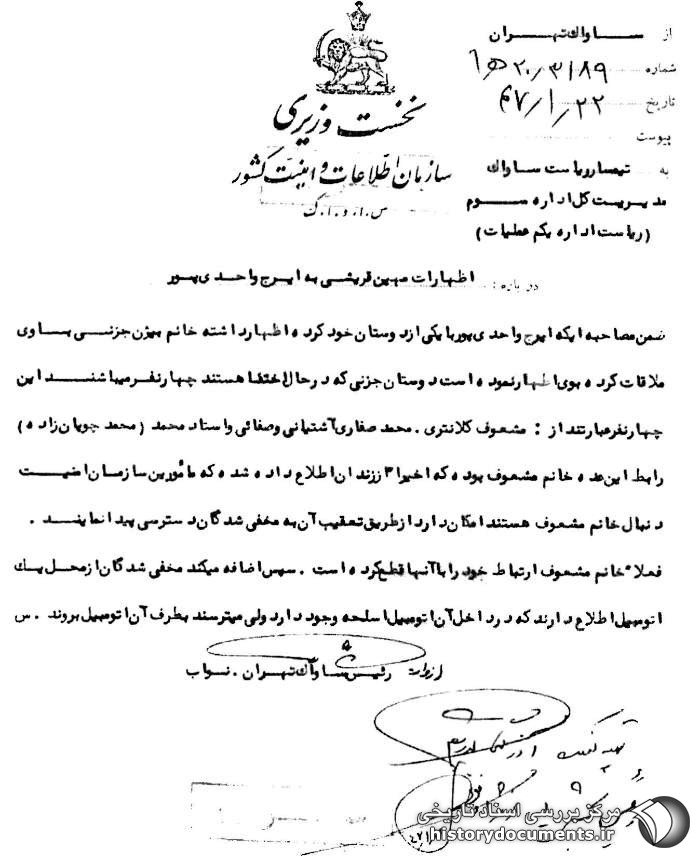 از ساواک تهران
شماره ۲۰/۳۱۸۹ ه‍ ۱
تاریخ ۴۷/۱/۲۲
پیوست
نخست وزیری
سازمان اطلاعات و امنیت کشور
س.ا.و.ا.ک
به تیمسار ریاست ساواک
مدیریت کل اداره سوم
(ریاست اداره یکم عملیات)
درباره: اظهارات مهین قریشی به ایرج واحدی پور
ضمن مصاحبه ایکه ایرج واحدی پور با یکی از دوستان خود کرده اظهار داشته خانم بیژن جزنی بـاوی
ملاقات کرده بوی اظهار نموده است دوستان جزنی که در حال اختفا هستند چهار نفر میباشنـد این
چهار نفر عبارتند از : مشعوف کلانتری . محمد صفاری آشتیانی وصفائی واستاد محمد (محمد چوپان زاده)
رابط این عده خانم مشعوف بوده که اخیرا از زندان اطلاع داده شده که مأمورین سازمان امنیـت
دنبال خانم مشعوف هستند امکان دارد از طریق تعقیب آن به مخفی شدگان دسترسی پیدا نماینـد .
فعلا" خانم مشعوف ارتباط خود را با آنها قطع کرده است . سپس اضافه میکند مخفی شدگان از محل یـك
اتومبیل اطلاع دارند که در داخل آن اتومبیل اسلحه وجود دارد ولی میترسند بطرف آن اتومبیل بروند . س
رئیس ساواک تهران . نواب
مرکز بررسی اسناد تاریخی
historydocuments.ir